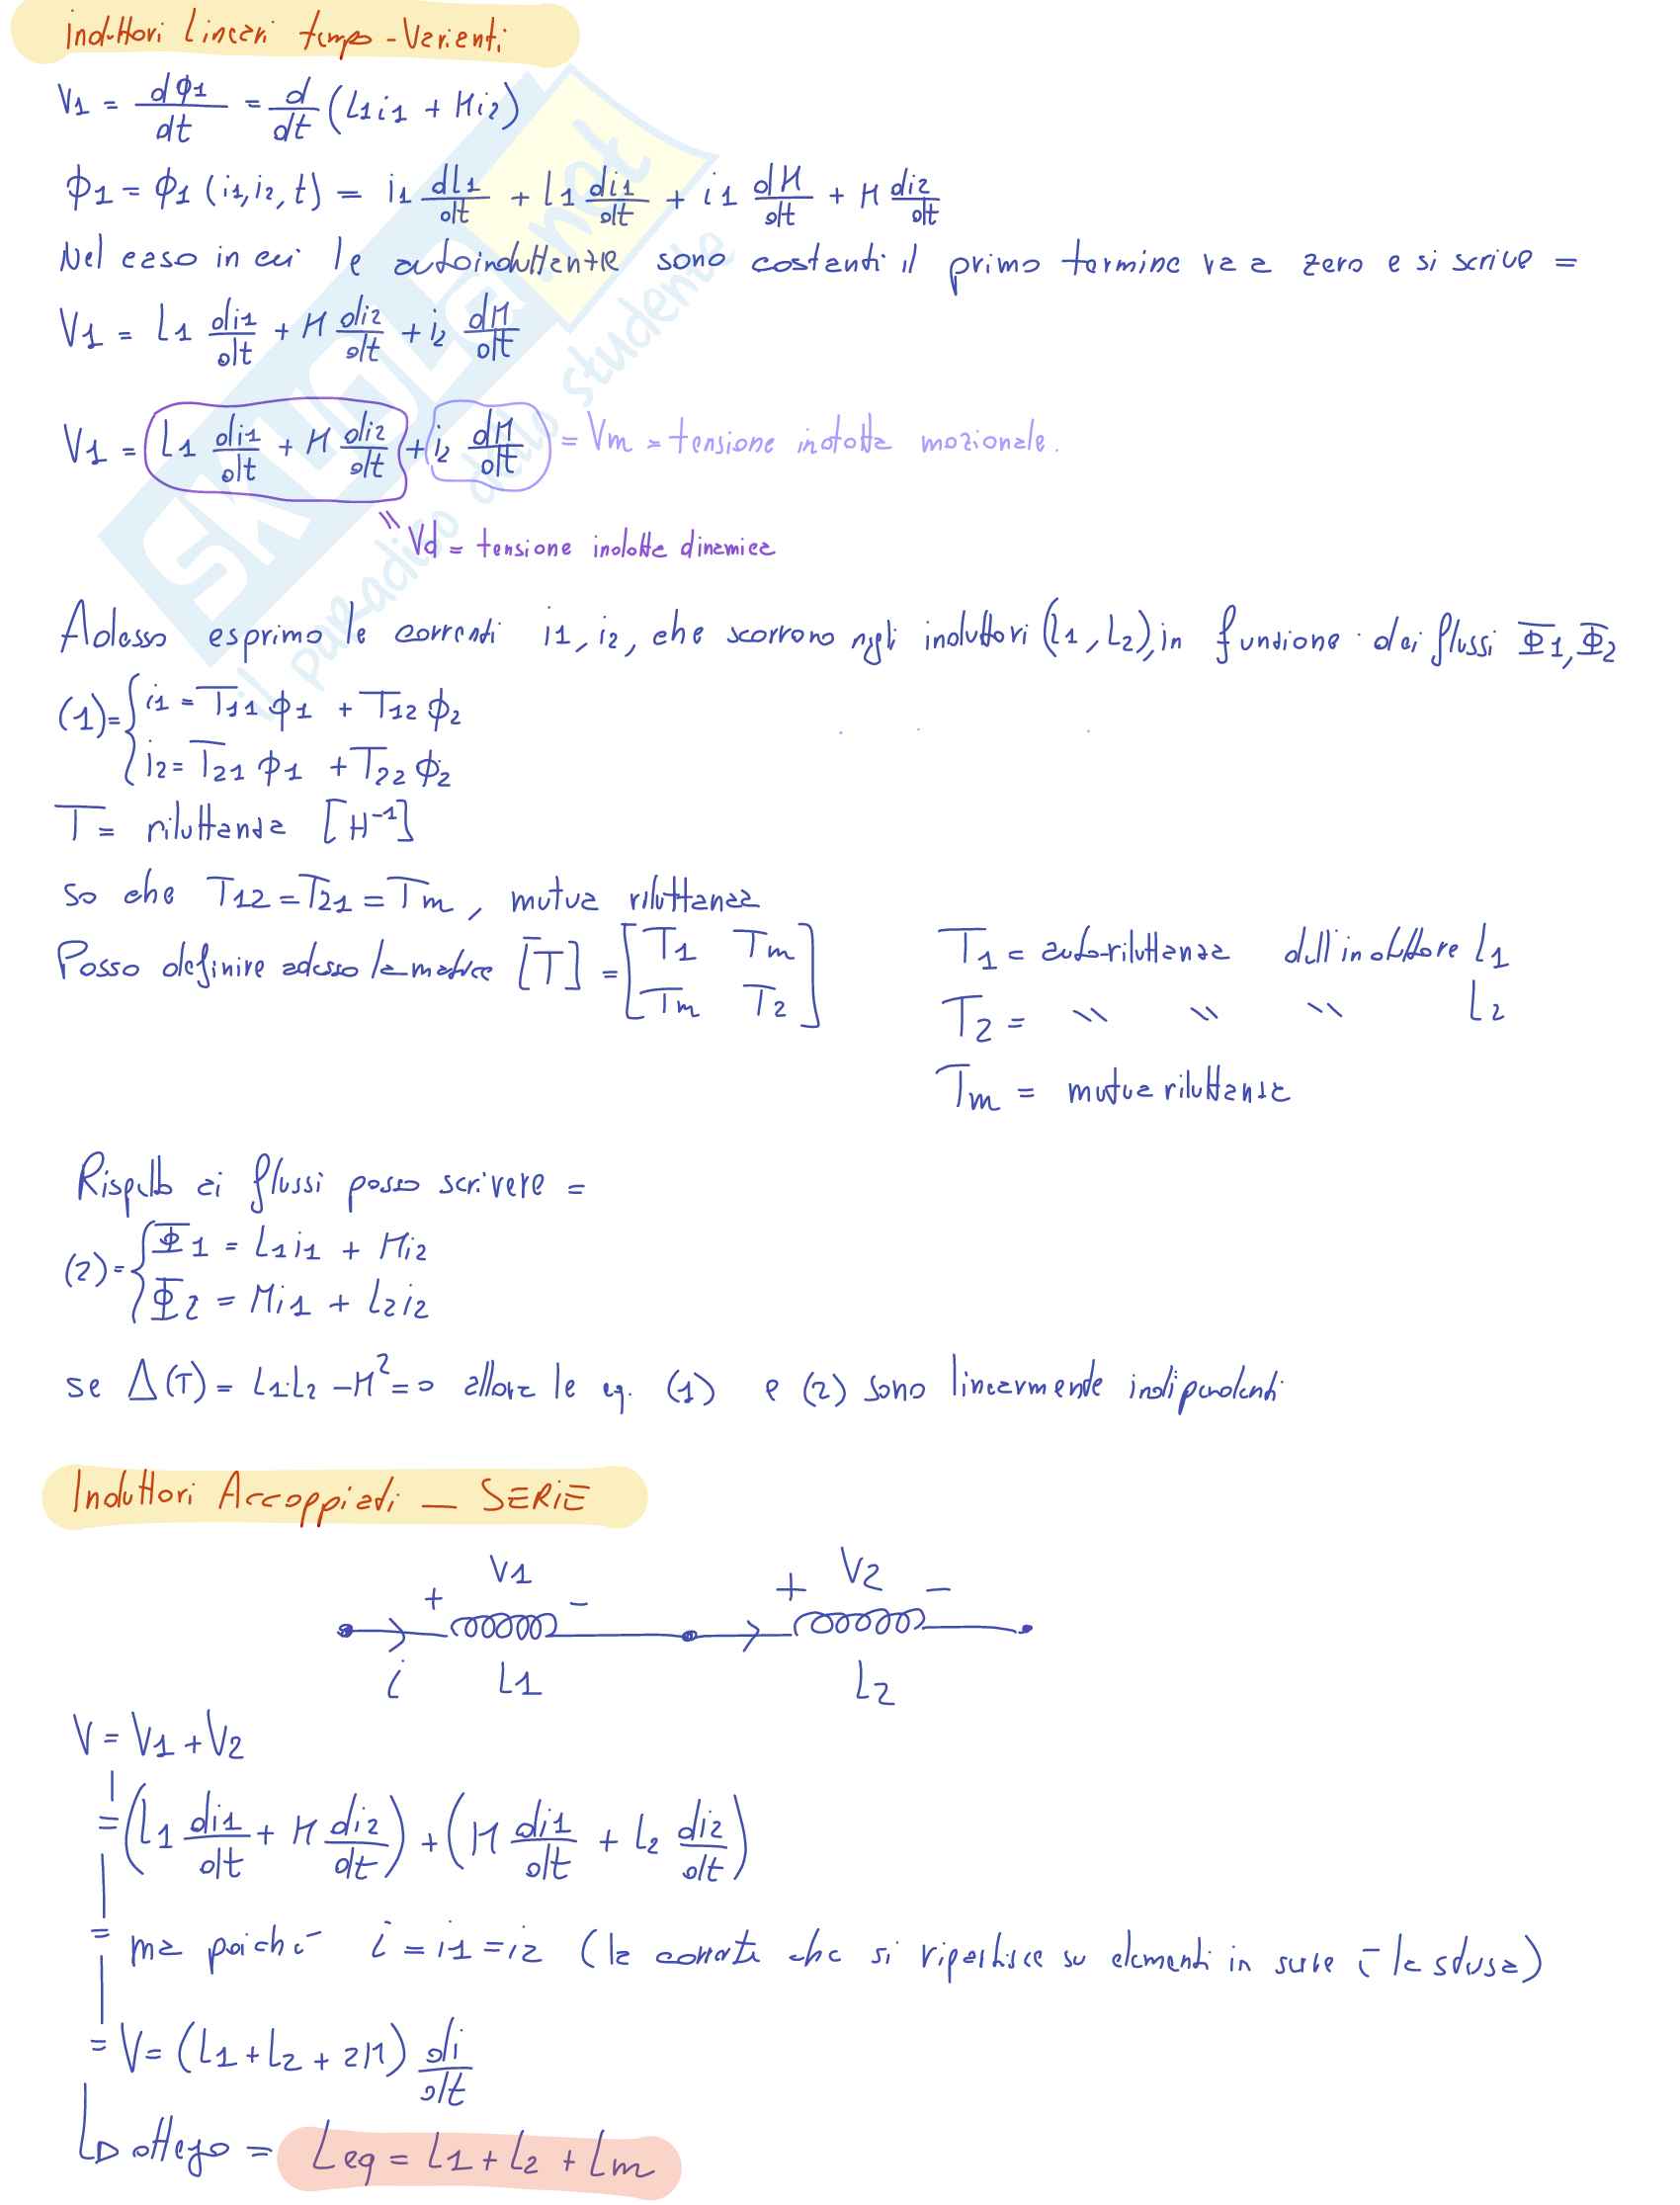 Induttori Lineari tempo-Varianti
V1 = dΦ1/dt = d/dt (L1i1 + Mi2)
Φ1 = Φ1 (i1, i2, t) = i1 dL1/dt + L1 di1/dt + i1 dM/dt + M di2/dt
Nel caso in cui le autoinduttanze sono costanti il primo termine va a zero e si scrive =
V1 = L1 di1/dt + M di2/dt + i2 dM/dt
V1 = L1 di1/dt + M di2/dt + i2 dM/dt = Vm = tensione indotta mozionale.
" Vd = tensione indotta dinamica
Adesso esprimo le correnti i1, i2, che scorrono negli induttori (L1, L2), in funzione dei flussi Φ1, Φ2
(1)= { i1 = T11 Φ1 + T12 Φ2
i2 = T21 Φ1 + T22 Φ2
T = riluttanza [H⁻¹]
so che T12 = T21 = Tm, mutua riluttanza
Posso definire adesso la matrice [T] = [T1 Tm
Tm T2]
T1 = auto-riluttanza dell'induttore L1
T2 = " " " L2
Tm = mutua riluttanza
Rispetto ai flussi posso scrivere =
(2)= { Φ1 = L1i1 + Mi2
Φ2 = Mi1 + L2i2
se Δ(T) = L1·L2 – M² = 0 allora le eq. (1) e (2) sono linearmente indipendenti
Induttori Accoppiati – SERIE
+ V1 – + V2 –
i L1 L2
V = V1 + V2
= (L1 di1/dt + M di2/dt) + (M di1/dt + L2 di2/dt)
= ma poiché i = i1 = i2 (la corrente che si ripartisce su elementi in serie è la stessa)
= V = (L1 + L2 + 2M) di/dt
ottengo = Leq = L1 + L2 + Lm
SKUOLA.net
il paradiso dello studente